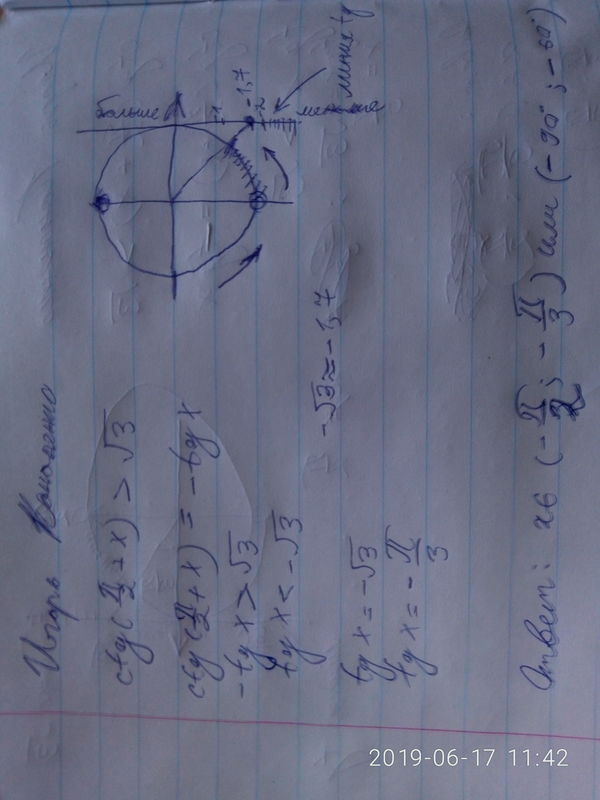 Игорь
ctg(π/2 + x) > √3
ctg(π/2 + x) = -tg x
-tg x > √3
tg x < -√3
-√3 ≈ -1,7
tg x = -√3
tg x = -π/3
больше
-1
-1,7
-2
меньше
линия tg
Ответ: x ∈ (-π/2; -π/3) или (-90°; -60°)
2019-06-17 11:42